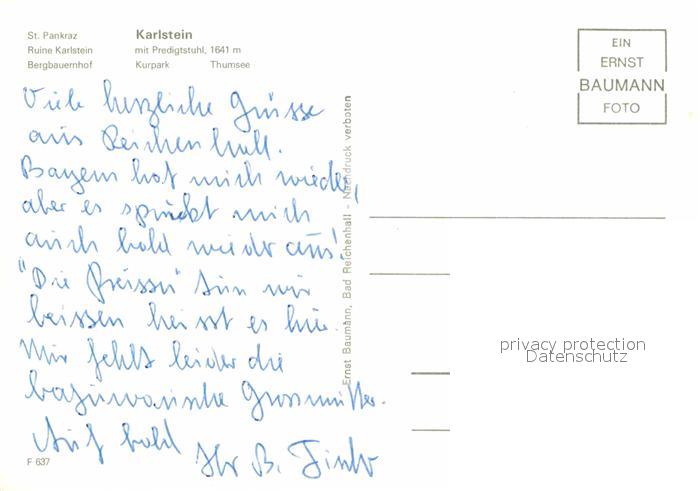 St. Pankraz
Ruine Karlstein
Bergbauernhof
Karlstein
mit Predigtstuhl, 1641 m
Kurpark Thumsee
EIN
ERNST
BAUMANN
FOTO
Viele herzliche Grüsse
aus Reichenhall.
Bayern hat mich wieder,
aber es spuckt mich
auch bald wieder aus!
"Die Preissn"
beissen heisst es hie.
Mir fehlt leider die
bajuwarische Grossmutter.
Auf bald
Ihr B.
F 637
Ernst Baumann, Bad Reichenhall - Nachdruck verboten
privacy protection
Datenschutz